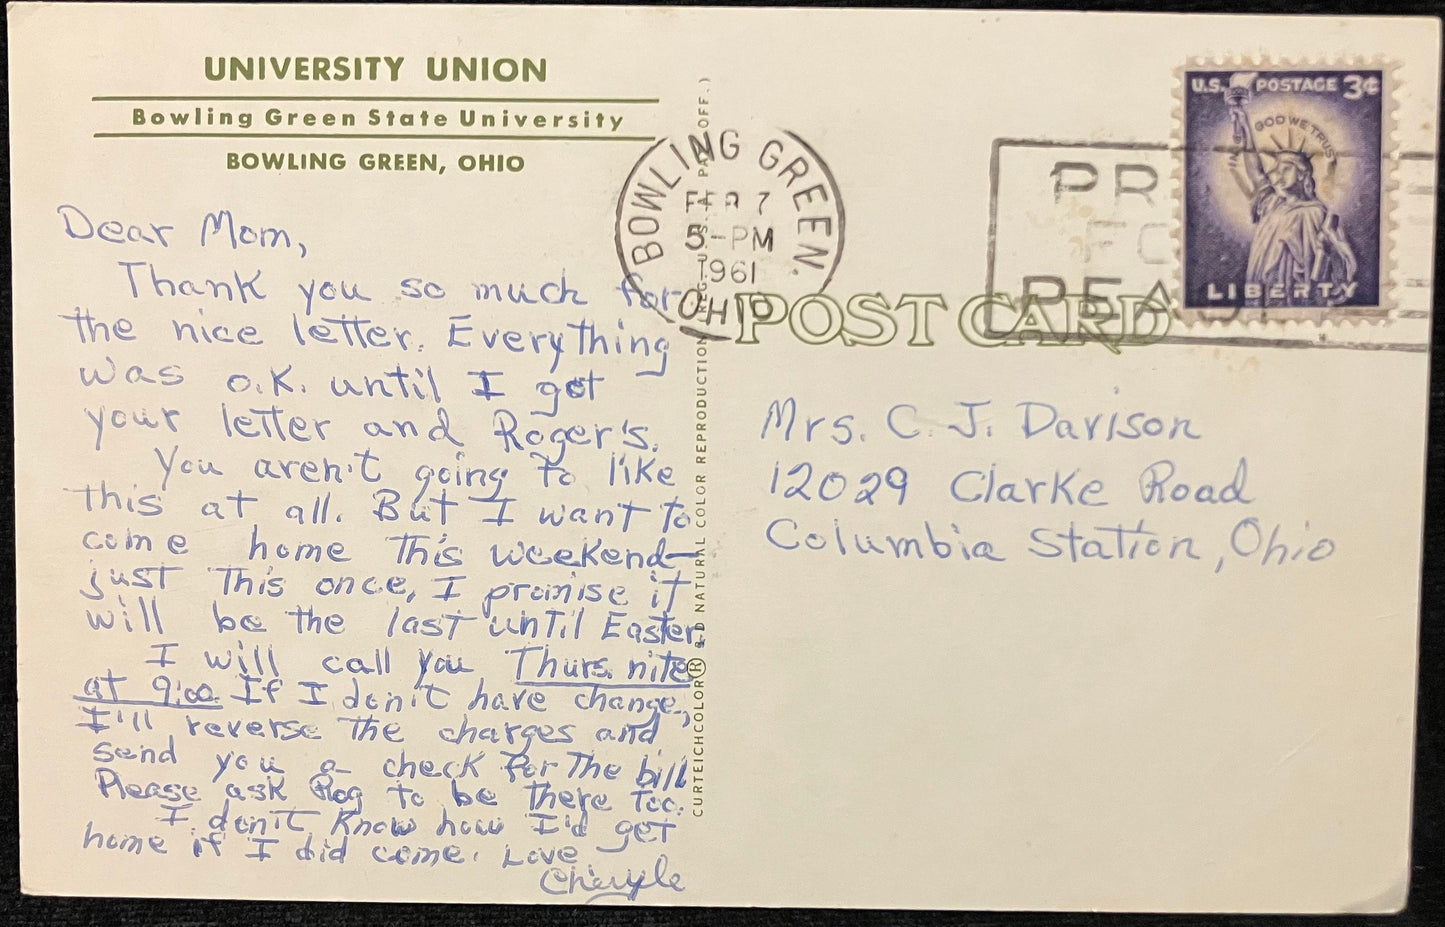 UNIVERSITY UNION
Bowling Green State University
BOWLING GREEN, OHIO
Dear Mom,
Thank you so much for
the nice letter. Everything
was o.K. until I got
your letter and Roger's.
You aren't going to like
this at all. But I want to
come home this weekend—
just this once, I promise it
will be the last until Easter.
I will call you Thurs. nite
at 9:00. If I don't have change,
I'll reverse the charges and
send you a check for the bill
Please ask Rog to be there too.
I don't know how I'd get
home if I did come. Love
Cheryle
CURTEICHCOLOR® 3-D NATURAL COLOR REPRODUCTION
BOWLING GREEN.
FEB 7
5-PM
1961
OHIO
POST CARD
PR
FO
PEA
U.S. POSTAGE 3¢
IN GOD WE TRUST
LIBERTY
Mrs. C. J. Davison
12029 Clarke Road
Columbia Station, Ohio